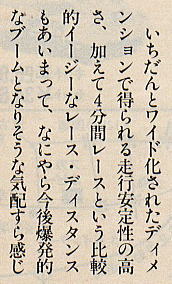 いちだんとワイド化されたディメ
ンションで得られる走行安定性の高
さ、加えて4分間レースという比較
的イージーなレース・ディスタンス
もあいまって、なにやら今後爆発的
なブームとなりそうな気配すら感じ